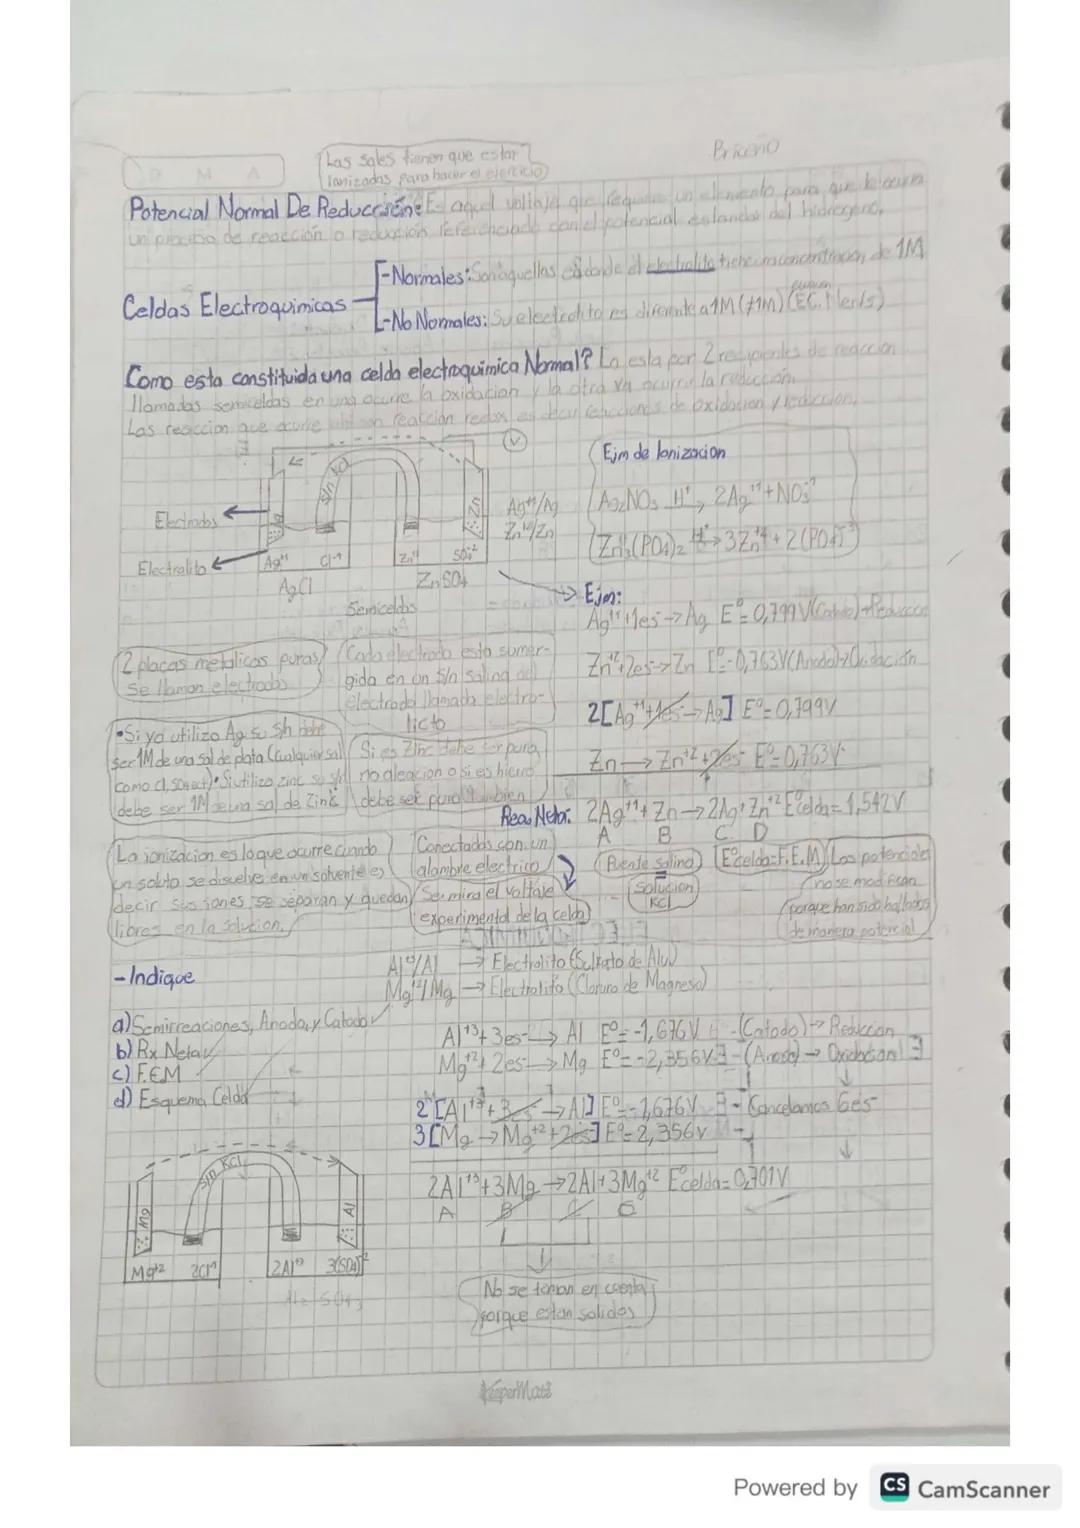 Briceño
D M A
Las sales tienen que estar
Ionizadas para hacer el ejercicio
Potencial Normal De Reduccisión: Es aquel voltaje que requiere un elemento para que le ocurra
un proceso de reacción o reducción referenciado con el potencial estandar del hidrogeno.
Celdas Electroquimicas
-Normales: Son aquellas en donde el electrolito tiene una concentracion de 1M
-No Normales: Su electrolito es diferente a 1M (≠1M) (EC. Nerns)
Como esta constituida una celda electroquimica Normal? Lo esta por 2 recipientes de reaccion
llamadas semiceldas en una ocurre la oxidacion y la otra va ocurrir la reducción.
Las reaccion que ocurre son reacción redox es decir reacciones de oxidacion y reduccion.
V
S/n KCl
Zn
Electrodos
Electrolito
Ag⁺¹ Cl⁻¹
Zn⁺² SO₄⁻²
AgCl
ZnSO₄
Semiceldas
Ag⁺¹/Ag
Zn⁺²/Zn
Ejm de Ionizacion
Ag₂NO₃ H⁺ → 2Ag⁺¹ + NO₃⁻¹
Zn₃(PO₄)₂ → 3Zn⁺² + 2(PO₄)⁻³
Ejm:
Ag⁺¹+1es⁻→Ag E°=0,799V(Catodo)→Reduccion
Zn⁺²+2es⁻→Zn E°=-0,763V(Anodo)→Oxidación
2[Ag⁺¹+1es⁻→Ag] E°=0,799V
Zn→Zn⁺²+2es⁻ E°=0,763V
Reac Neta: 2Ag⁺¹+Zn→2Ag+Zn⁺² E°celda=1,542V
A B C D
2 placas metalicas puras,
se llaman electrodos
Cada electrodo esta sumer-
gida en un S/n salina del
electrodo llamada electro-
licto
•Si yo utilizo Ag su S/n debe
ser 1M de una sal de plata (Cualquier sal
como Cl, SO₄ ect)•Si utilizo zinc su S/n
debe ser 1M de una sal de Zinc
Si es Zinc debe ser pura,
no aleacion o si es hierro
debe ser puro tambien
La ionizacion es lo que ocurre cuando
un soluto se disuelve en un solvente es
decir sus iones se separan y quedan
libres en la solucion.
Conectadas con un
alambre electrico
Se mira el voltaje
experimental de la celda
Puente salino
=
Solucion
KCl
E°celda=F.E.M
Los potenciales
no se modifican
porque han sido hallados
de manera potencial
-Indique
Al⁺³/Al → Electrolito (Sulfato de Alu)
Mg⁺²/Mg → Electrolito (Cloruro de Magnesio)
a) Semirreaciones, Anodo, y Catodo
b) Rx Neta
c) F.E.M
d) Esquema Celda
Al⁺³+3es⁻→Al E°=-1,676V -(Catodo)→Reduccion
Mg⁺²+2es⁻→Mg E°=-2,356V -(Anodo)→Oxidacion
2[Al⁺³+3es⁻→Al] E°=-1,676V - Cancelamos 6es
3[Mg→Mg⁺²+2es⁻] E°=2,356V
2Al⁺³+3Mg→2Al+3Mg⁺² E°celda=0,701V
A B C
No se toman en cuenta
porque estan solidos
S/n KCl
Mg
Al
Mg⁺² 2Cl⁻¹
2Al⁺³ 3(SO₄)⁻²
KeeperMate
Powered by CS CamScanner